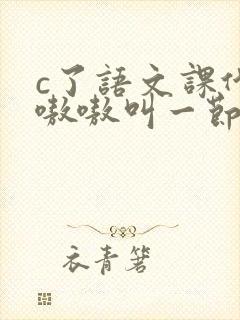 c了語文課代
嗷嗷叫一節
衣青箬